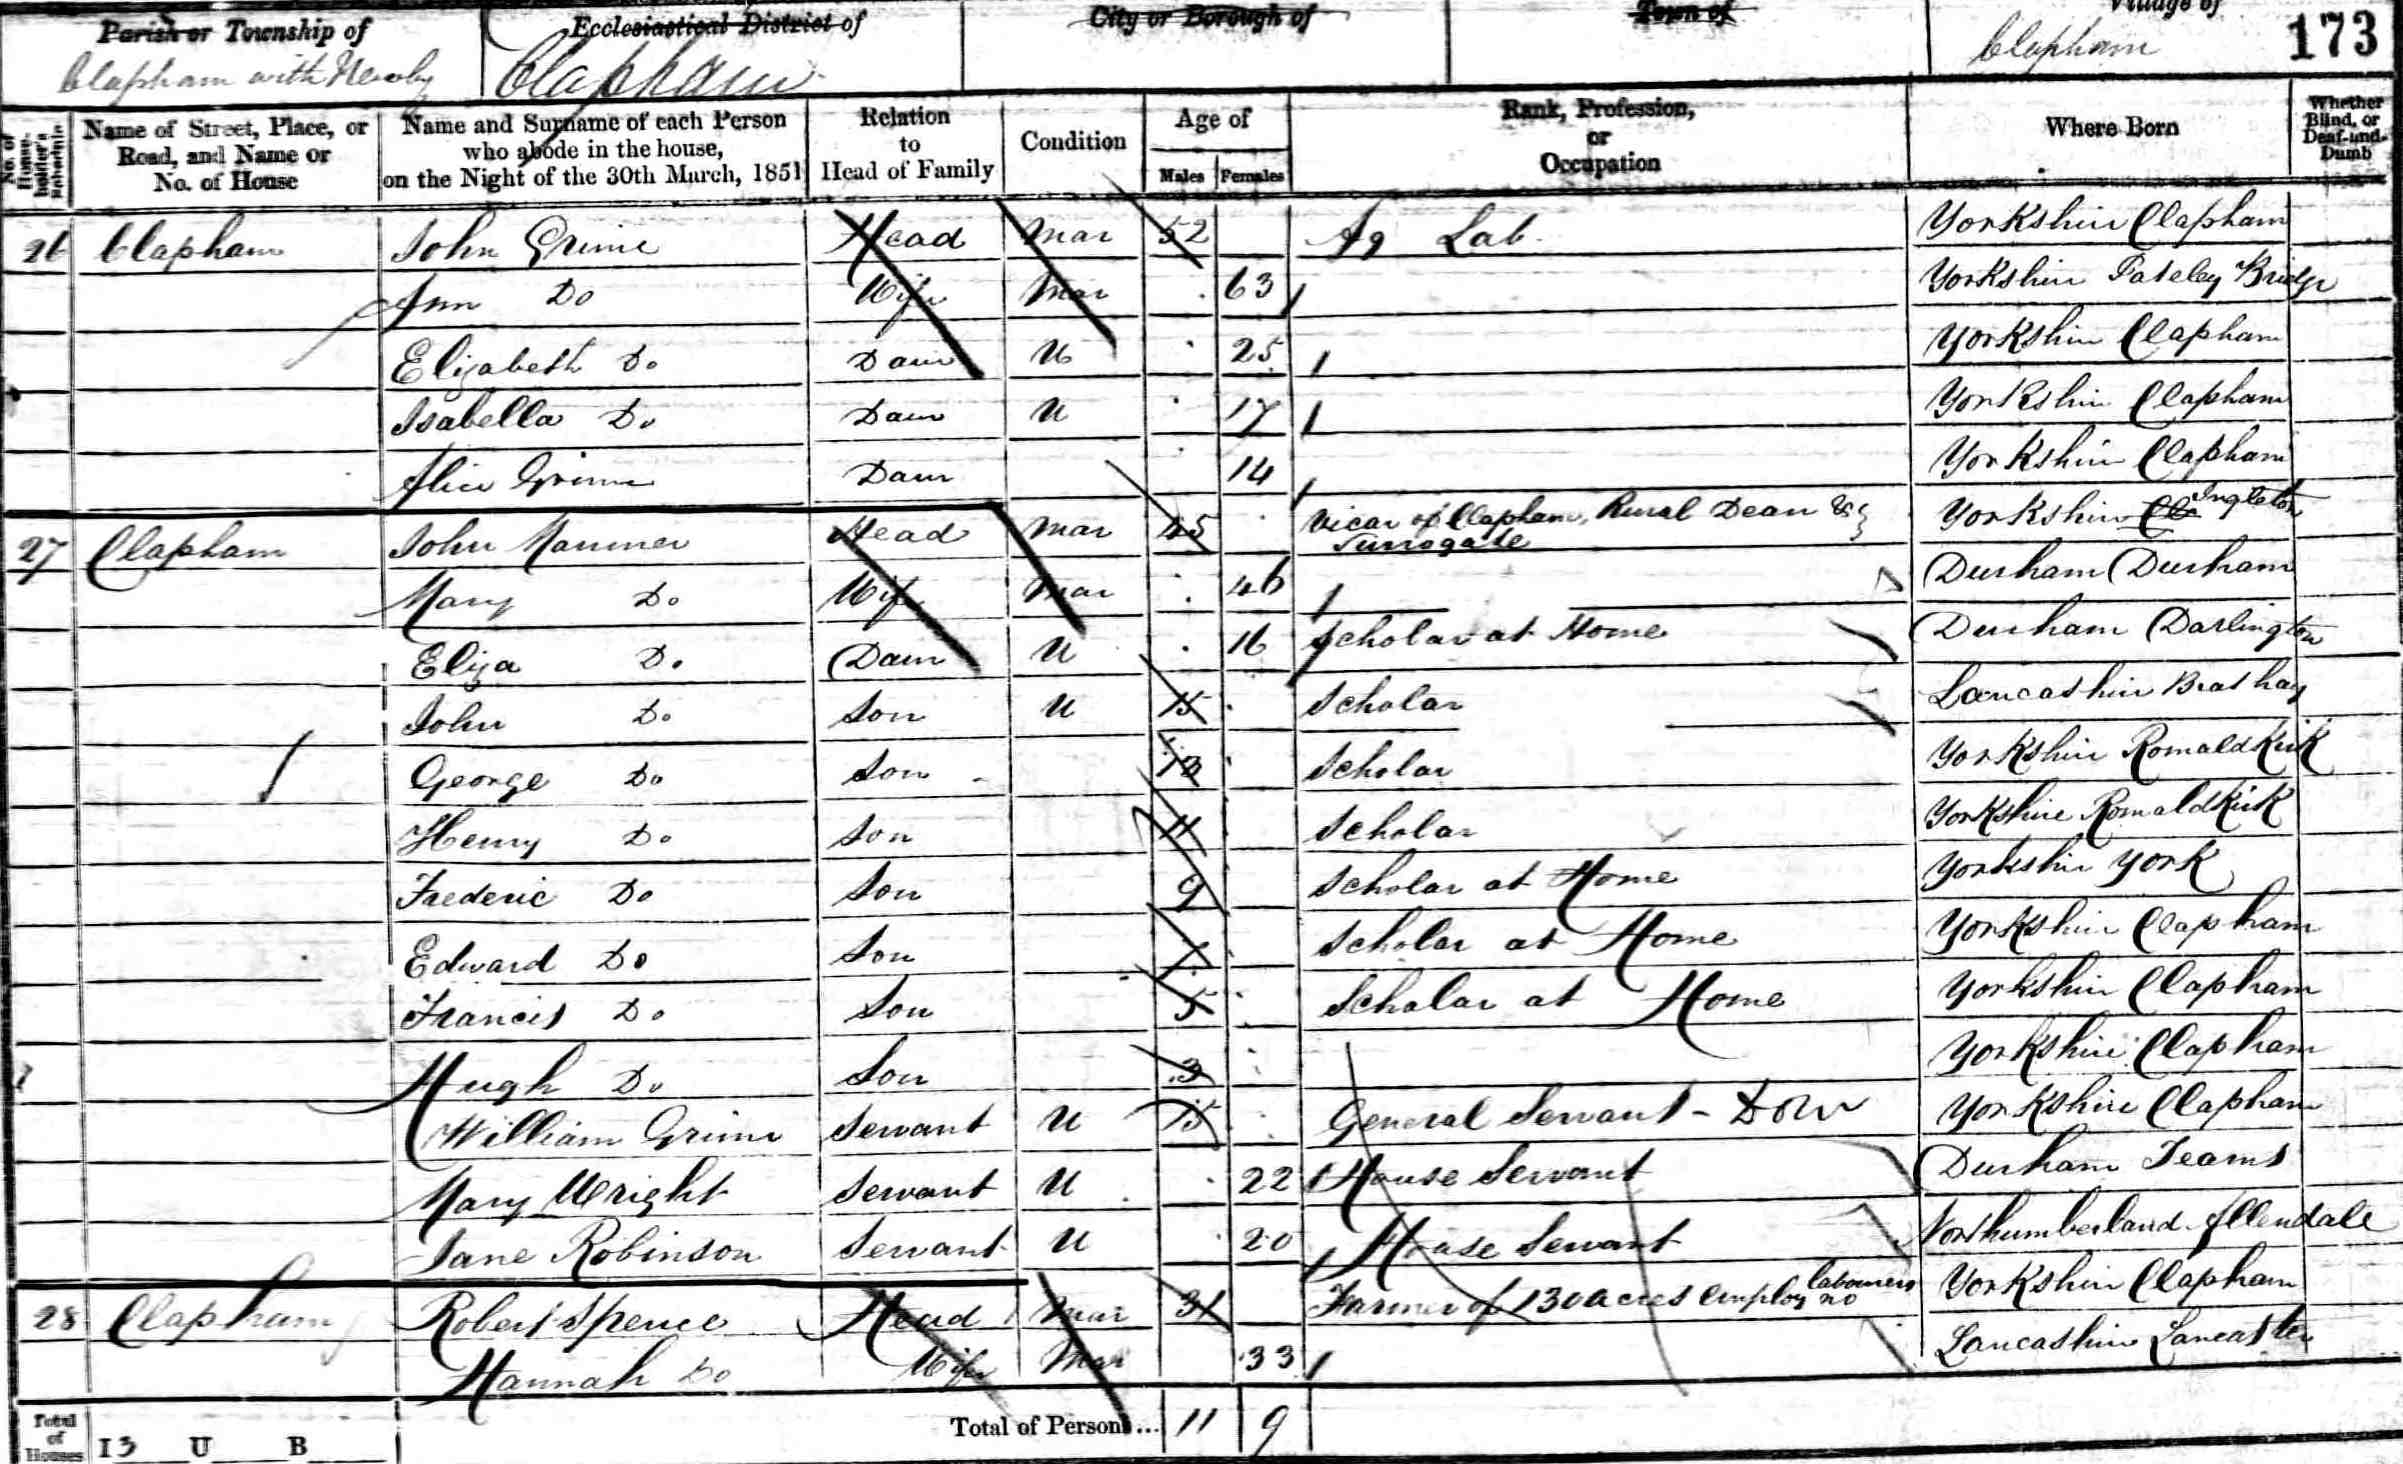 Parish or Township of Ecclesiastical District of City or Borough of Town of Village of 173
Clapham with Newby Clapham Clapham
No. of House-holder's Schedule Name of Street, Place, or Road, and Name or No. of House Name and Surname of each Person who abode in the house, on the Night of the 30th March, 1851 Relation to Head of Family Condition Age of Males Females Rank, Profession, or Occupation Where Born Whether Blind, or Deaf-and-Dumb
26 Clapham John Grime Head Mar 52 Ag Lab. Yorkshire Clapham
Ann Do Wife Mar 63 Yorkshire Pateley Bridge
Elizabeth Do Daur U 25 Yorkshire Clapham
Isabella Do Daur U 17 Yorkshire Clapham
Alice Grime Daur 14 Yorkshire Clapham
27 Clapham John Marriner Head Mar 45 Vicar of Clapham, Rural Dean & Surrogate Yorkshire Ingleton
Mary Do Wife Mar 46 Durham Durham
Eliza Do Daur U 16 Scholar at Home Durham Darlington
John Do Son U 15 Scholar Lancashire Brathay
George Do Son 13 Scholar Yorkshire Romaldkirk
Henry Do Son 11 Scholar Yorkshire Romaldkirk
Frederic Do Son 9 Scholar at Home Yorkshire York
Edward Do Son 7 Scholar at Home Yorkshire Clapham
Francis Do Son 5 Scholar at Home Yorkshire Clapham
Hugh Do Son 3 Yorkshire Clapham
William Grime Servant U 15 General Servant - Dom Yorkshire Clapham
Mary Wright Servant U 22 House Servant Durham Teams
Jane Robinson Servant U 20 House Servant Northumberland Allendale
28 Clapham Robert Spence Head Mar 31 Farmer of 130 acres employ no labourers Yorkshire Clapham
Hannah Do Wife Mar 33 Lancashire Lancaster
Total of Houses I 3 U B Total of Persons... 11 9